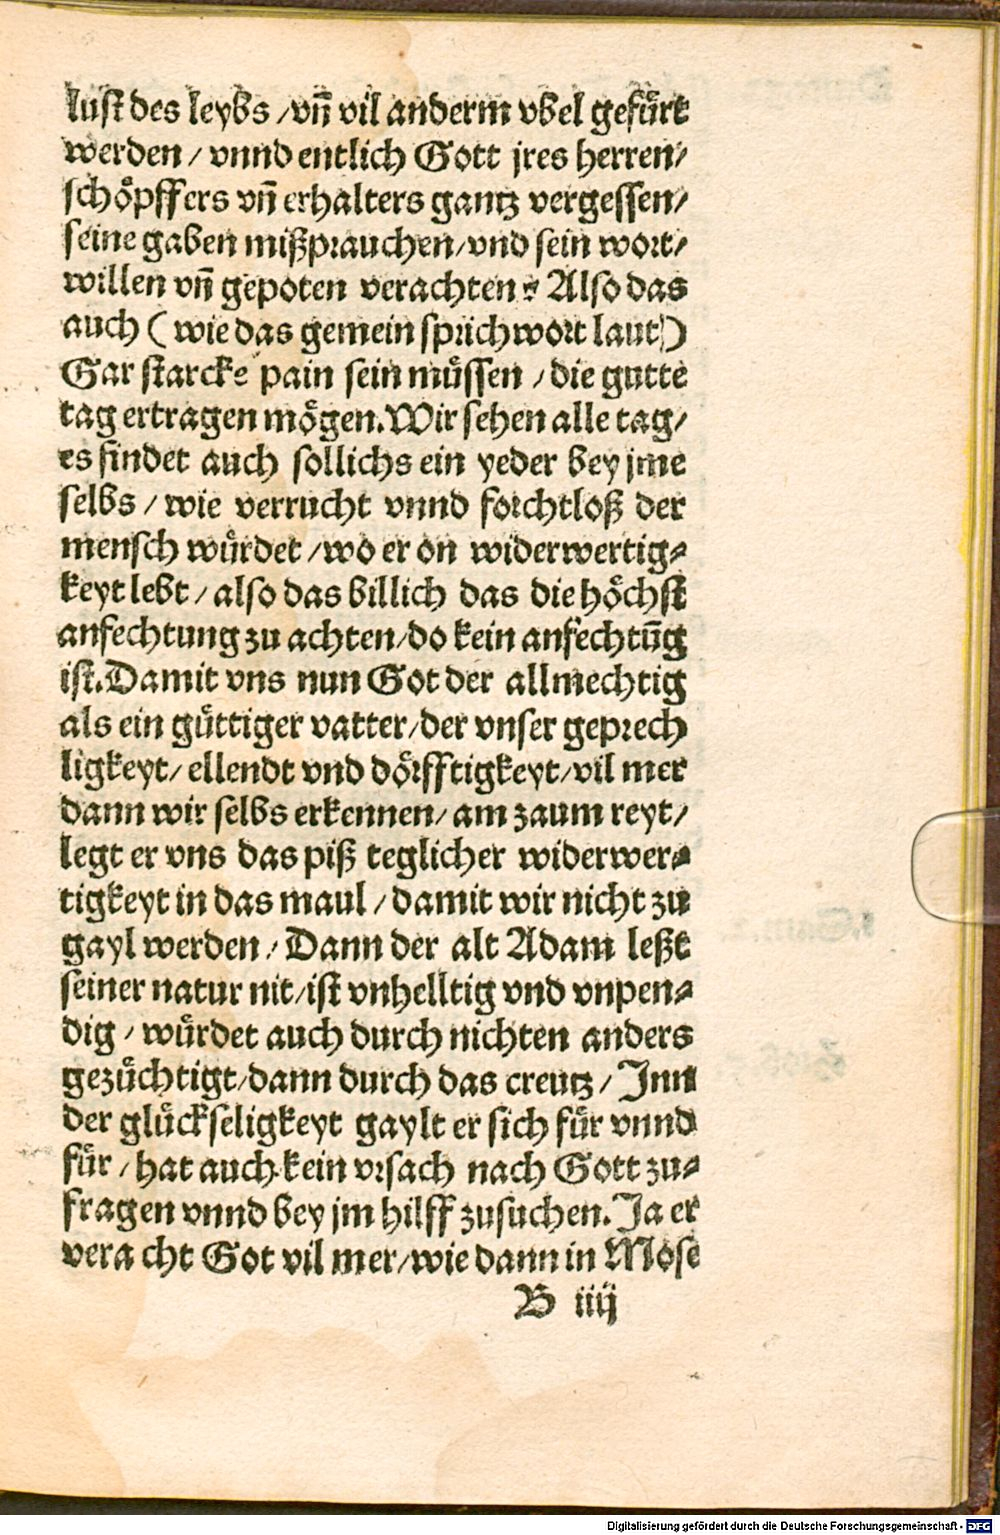 lust des leybs /vn̄ vil anderm vbel gefuͤrt
werden / vnnd entlich Gott jres herren/
schoͤpffers vn̄ erhalters gantz vergessen/
seine gaben mißprauchen/vnd sein wort/
willen vn̄ gepoten verachten? Also das
auch ( wie das gemein sprichwort laut)
Gar starcke pain sein muͤssen /die gutte
tag ertragen moͤgen. Wir sehen alle tag/
es findet auch sollichs ein yeder bey jme
selbs / wie verrucht vnnd forchtloß der
mensch wuͤrdet /wo er on widerwertig⸗
keyt lebt / also das billich das die hoͤchst
anfechtung zu achten/do kein anfechtūg
ist. Damit vns nun Got der allmechtig
als ein guͤttiger vatter/der vnser geprech
ligkeyt/ ellendt vnd doͤrfftigkeyt/vil mer
dann wir selbs erkennen/ am zaum reyt/
legt er vns das piß teglicher widerwer⸗
tigkeyt in das maul / damit wir nicht zu
gayl werden / Dann der alt Adam leßt
seiner natur nit/ist vnhelltig vnd vnpen⸗
dig / wuͤrdet auch durch nichten anders
gezuͤchtigt/dann durch das creutz / Jnn
der gluͤckseligkeyt gaylt er sich fuͤr vnnd
fuͤr / hat auch kein vrsach nach Gott zu⸗
fragen vnnd bey jm hilff zusuchen. Ja er
vera cht Got vil mer/wie dann in Mose
B iiij
Digitalisierung gefördert durch die Deutsche Forschungsgemeinschaft - DFG